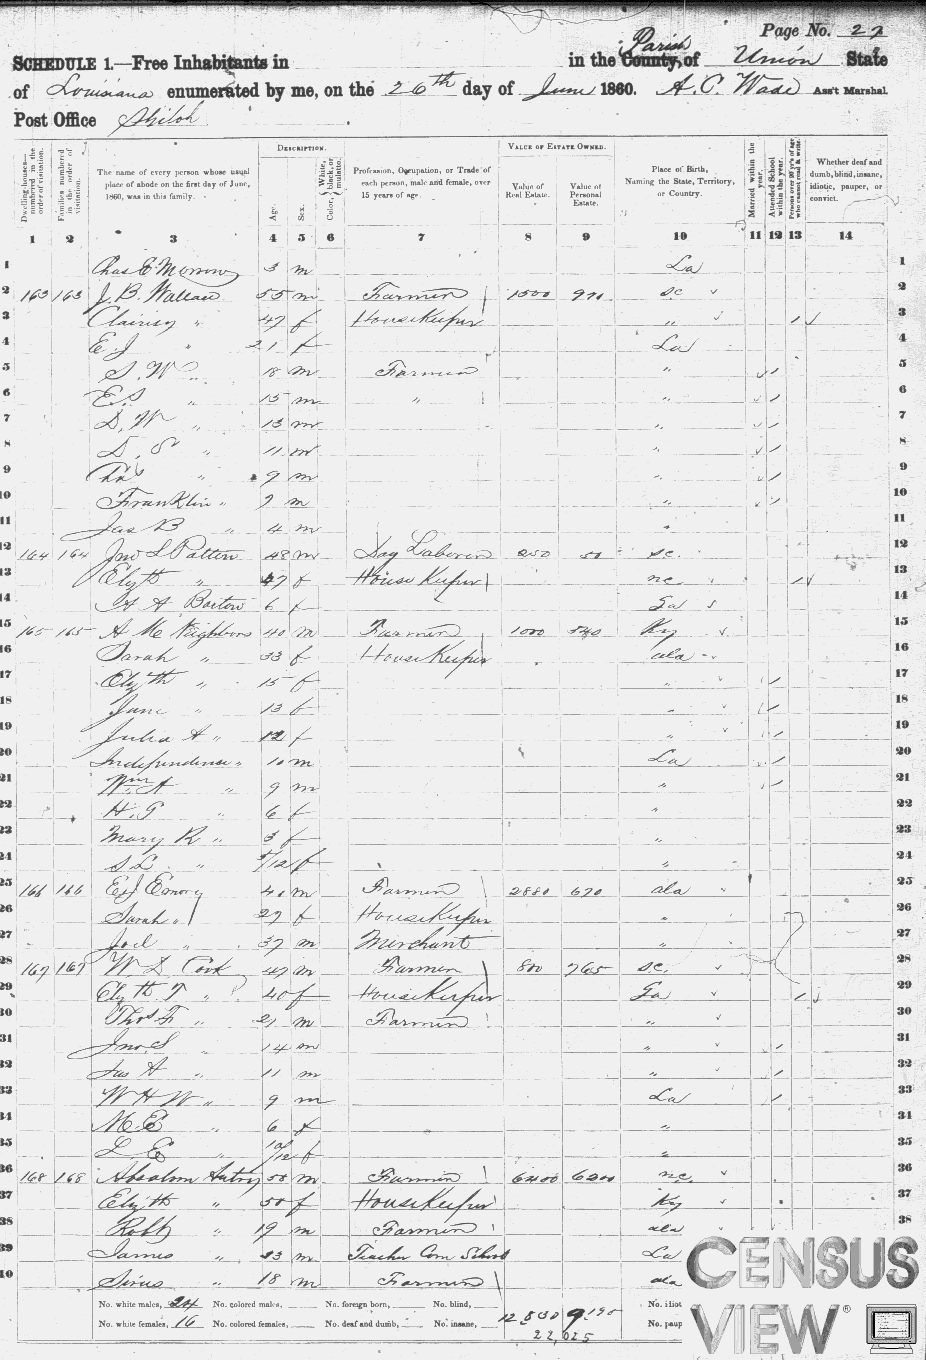 Page No. 27
SCHEDULE 1.—Free Inhabitants in in the County, of Parish Union State
of Louisiana enumerated by me, on the 26th day of June 1860. A. C. Wade Ass't Marshal
Post Office Shiloh
Dwelling-houses—numbered in the order of visitation.
Families numbered in the order of visitation.
The name of every person whose usual place of abode on the first day of June, 1860, was in this family.
DESCRIPTION.
Age.
Sex.
Color, White, black, or mulatto.
Profession, Occupation, or Trade of each person, male and female, over 15 years of age.
VALUE OF ESTATE OWNED.
Value of Real Estate.
Value of Personal Estate.
Place of Birth, Naming the State, Territory, or Country.
Married within the year.
Attended School within the year.
Persons over 20 y'rs of age who cannot read & write.
Whether deaf and dumb, blind, insane, idiotic, pauper, or convict.
1 2 3 4 5 6 7 8 9 10 11 12 13 14
1 Chas E Morrow 3 m La 1
2 163 163 J. B. Wallace 55 m Farmer 1500 sc 2
3 " 47 f HouseKeeper " 3
4 E J " 21 f La 4
5 S. W " 18 m Farmer " 5
6 " 15 m " " 6
7 D. W " 13 m " 7
8 " 11 m " 8
9 " 9 m " 9
10 Franklin " 7 m " 10
11 Jas B " 4 m " 11
12 164 164 Jno L Patten 48 m Day Laborer 250 50 sc. 12
13 Elizth " 47 f House Keeper nc 13
14 Barton 6 f Ga 14
15 165 165 A Mc Neighbors 40 m Farmer 1000 540 Ky 15
16 Sarah " 33 f HouseKeeper ala 16
17 Elizth " 15 f " 17
18 Jane " 13 f " 18
19 Julia A " 12 f " 19
20 Independence " 10 m La 20
21 Wm A " 9 m " 21
22 " 6 f " 22
23 Mary R " 3 f " 23
24 S L " /12 f " 24
25 166 166 Emory m Farmer 2880 670 ala 25
26 Sarah " 27 f HouseKeeper " 26
27 Joel " 37 m Merchant " 27
28 167 167 W. D. Cook 47 m Farmer 800 765 sc. 28
29 Elizth T " 40 f HouseKeeper Ga 29
30 Thos F " 21 m Farmer " 30
31 Jno. S " 14 m " 31
32 Jas A " 11 m " 32
33 W H W " 9 m La 33
34 M. E " 6 f " 34
35 L. E " 10/12 f " 35
36 168 168 Absalom Autry m Farmer 6400 6200 nc. 36
37 Elizth " 50 f HouseKeeper Ky 37
38 Robt " 19 m Farmer ala 38
39 James " 23 m Teacher Com School La
10 " 18 m Farmer ala
No. white males, 24 No. colored males, No. foreign born, No. blind, No. idiot
No. white females, 16 No. colored females, No. deaf and dumb, No. insane, No. paup
22,025
CENSUS
VIEW ®